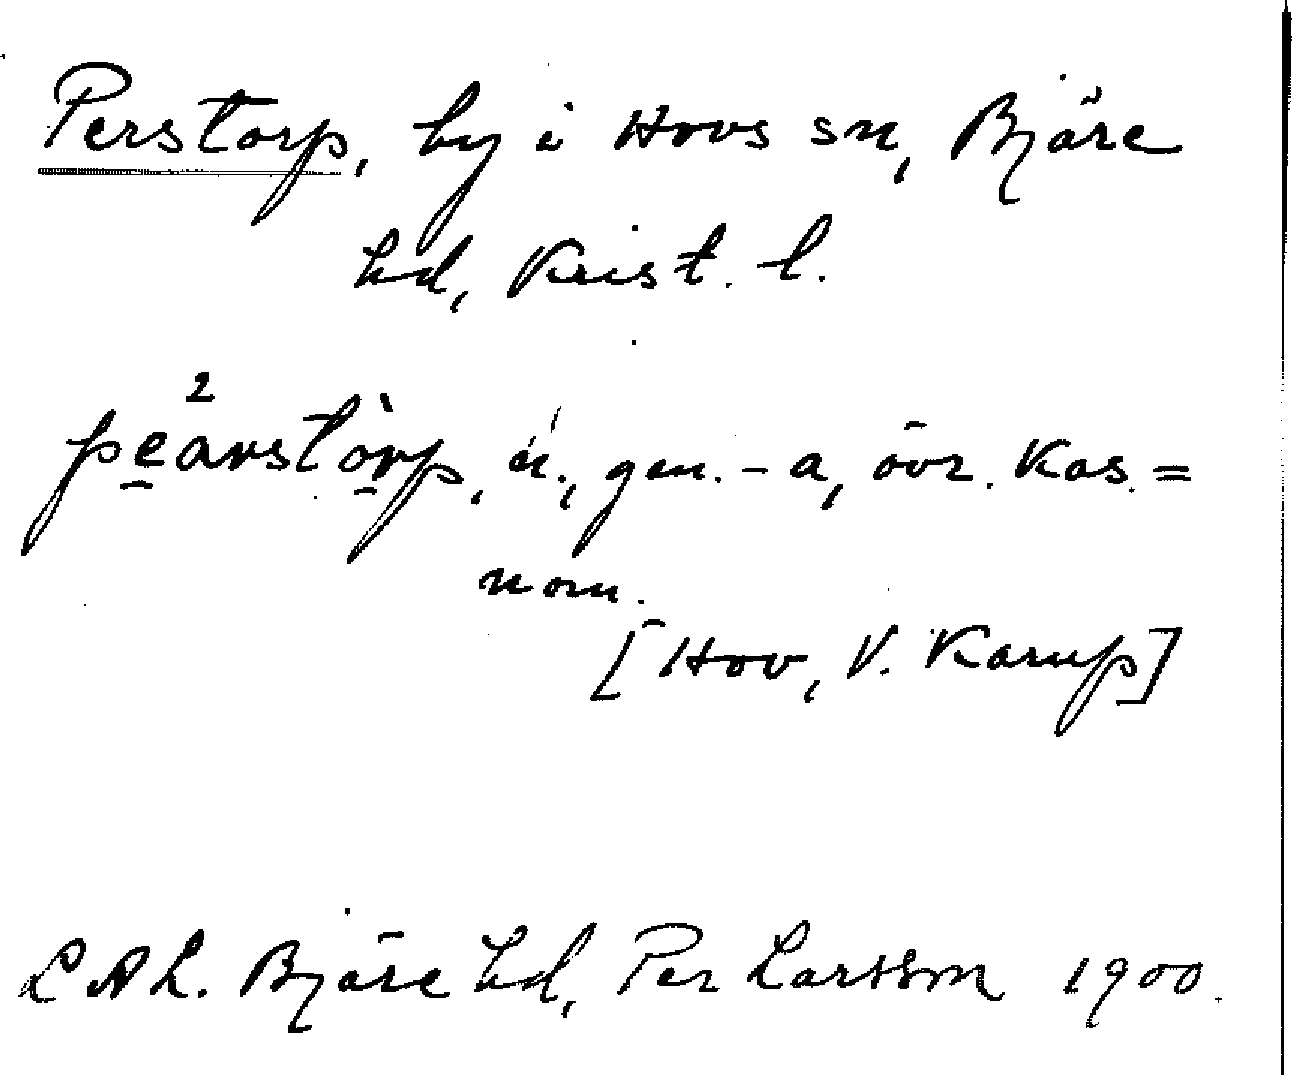 Perstorp, by i Hovs sn, Bjäre
hd, Krist. l.
pea²rstòrp, n., gen. -a, övr. Kas. =
nom.
[Hov, V. Karup]
LAL. Bjäre hd, Per Larsson 1900.